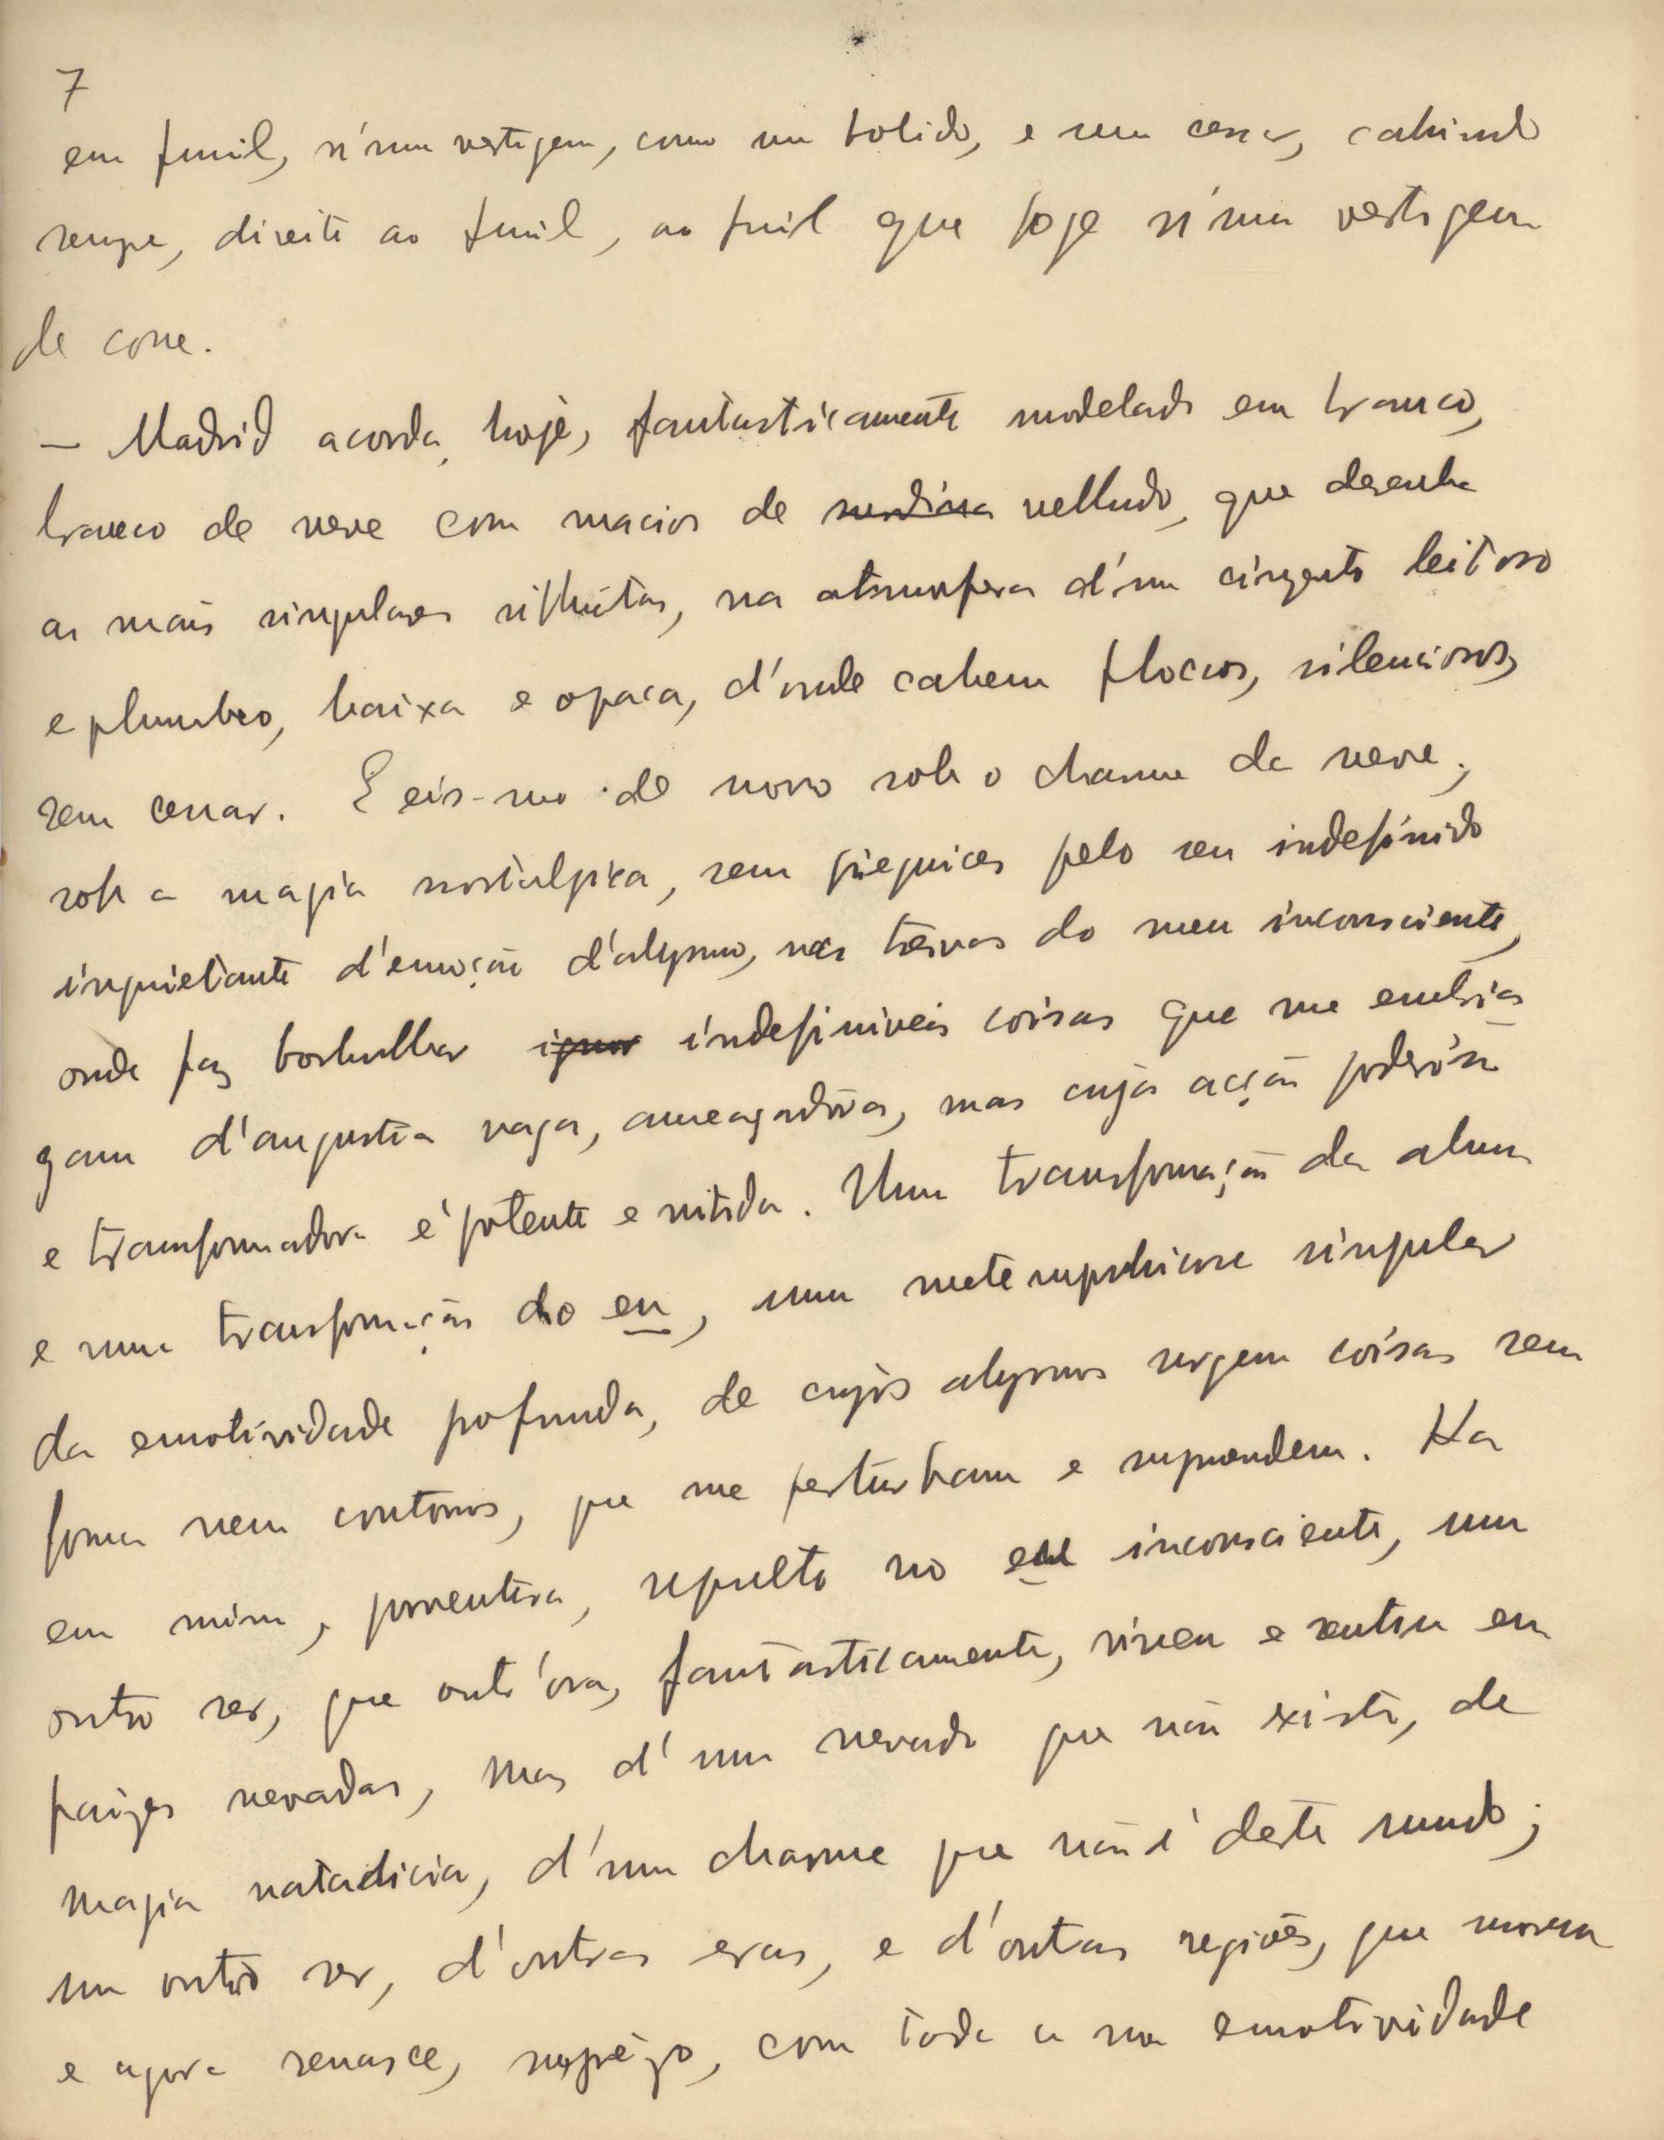 7
em funil, n'uma vertigem, como um bolido, e sem cessar, cahindo
sempre, direito ao funil, ao funil que foge n'uma vertigem
de cone.
— Madrid acorda, hoje, fantasticamente modelado em branco,
branco de neve com macios de surdina velludo, que desenha
as mais singulares silhuetas, na atmosfera d'um cinzento leitoso
e plumbeo, baixa e opaca, d'onde cahem flocos, silenciosos,
sem cessar. E eis-me de novo sob o charme da neve;
sob a magia nostalgica, sem pieguices pelo seu indefinido
inquietante d'emoção d'abysmo, nas trevas do meu inconsciente,
onde faz borbulhar indefiniveis coisas que me embria
gam d'angustia vaga, ameaçadoras, mas cuja acção poderosa
e transformadora é potente e nitida. Uma transformação da alma
e uma transformação do eu, uma metempsichose singular
da emotividade profunda, de cujos abysmos surgem coisas sem
forma nem contornos, que me perturbam e surprendem. Ha
em mim, porventura, sepulto no eu inconsciente, um
outro ser, que outr'ora, fantasticamente, viveu e sentiu em
paizes nevados, mas d'um nevado que não existe, de
magia natadicia, d'um charme que não é deste mundo;
um outro ser, d'outras eras, e d'outras regiões, que morreu
e agora renasce, com toda a sua emotividade